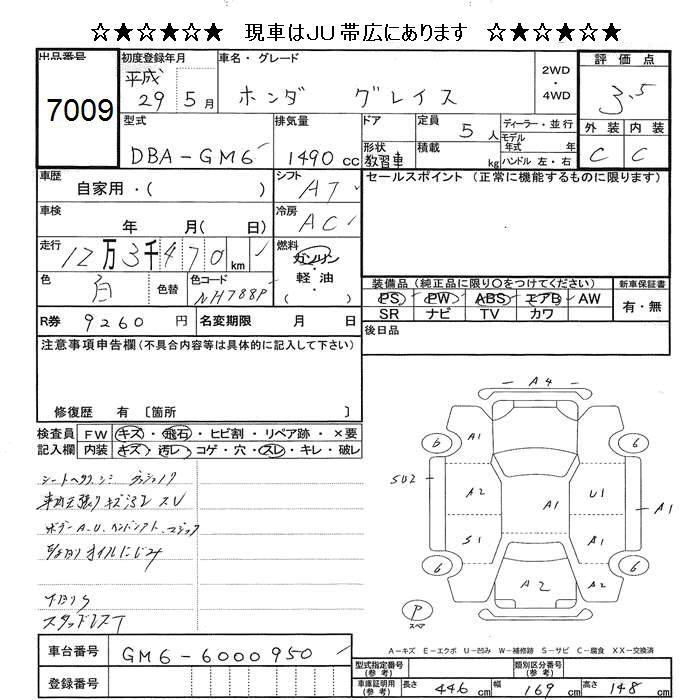 ☆★☆★☆★ 現車はJU帯広にあります ☆★☆★☆★
出品番号 7009
初度登録年月 平成 29 5月
車名・グレード ホンダ グレイス
2WD・4WD
評価点 3.5
外装 内装
C C
型式 DBA-GM6
排気量 1490 cc
ドア 形状 教習車
定員 5人
積載 kg
ディーラー・並行
モデル年式 年式
ハンドル 左・右
車歴 自家用・( )
シフト AT
セールスポイント (正常に機能するものに限ります)
車検 年 月( 日)
冷房 AC
走行 12万3千470 km
燃料 ガソリン・軽油
色 白 色替 色コード NH788P
装備品 (純正品に限り○をつけてください)
新車保証書
PS PW ABS エアB AW
有・無
SR ナビ TV カワ
R券 9260 円 名変期限 月 日
後日品
注意事項申告欄 (不具合内容等は具体的に記入して下さい)
修復歴 有 〔箇所 〕
検査員記入欄
FW キズ・飛石・ヒビ割・リペア跡・×要
内装 キズ・汚レ・コゲ・穴・スレ・キレ・破レ
A4
A1
SU2
A2
A1
U1
A1
S1
A1
A2
A2
6
6
6
6
P
スペア
A-キズ E-エクボ U-凹み W-補修跡 S-サビ C-腐食 XX-交換済
車台番号 GM6-6000950
登録番号
型式指定番号 (参考)
類別区分番号 (参考)
車庫証明用 (参考) 長さ 446 cm 幅 169 cm 高さ 148 cm